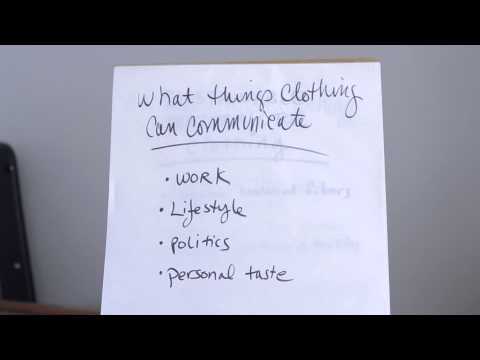 What things Clothing
Can Communicate
• WORK
• Lifestyle
• politics
• personal taste